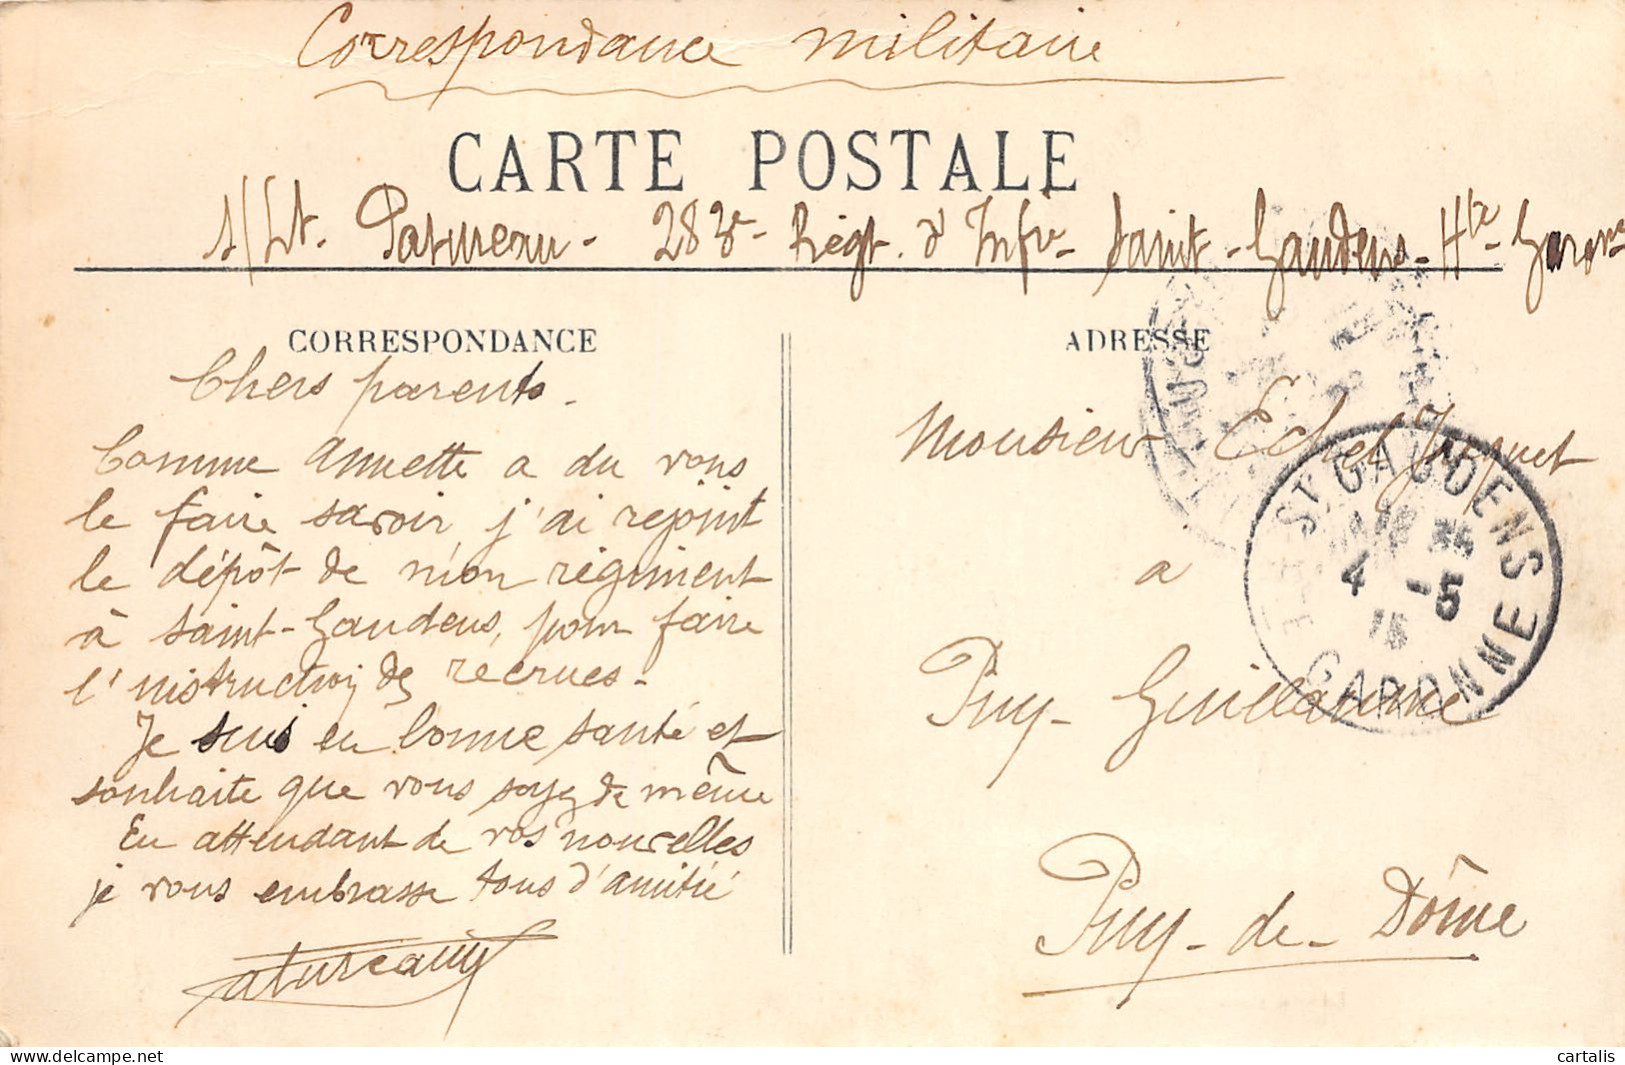 Correspondance militaire
CARTE POSTALE
s/Lt. Patureau - 283e Régt. d'Infie Saint-Gaudens - Hte Garonne
CORRESPONDANCE
Chers parents.
Comme Annette a du vous
le faire savoir, j'ai rejoint
le dépôt de mon régiment
à Saint-Gaudens, pour faire
l'instruction des recrues.
Je suis en bonne santé et
souhaite que vous soyez de même
En attendant de vos nouvelles
je vous embrasse tous d'amitié
Patureau
ADRESSE
Monsieur Echel
à
Puy-Guillaume
Puy-de-Dôme
ST GAUDENS
4 -5
15
GARONNE
cartalis